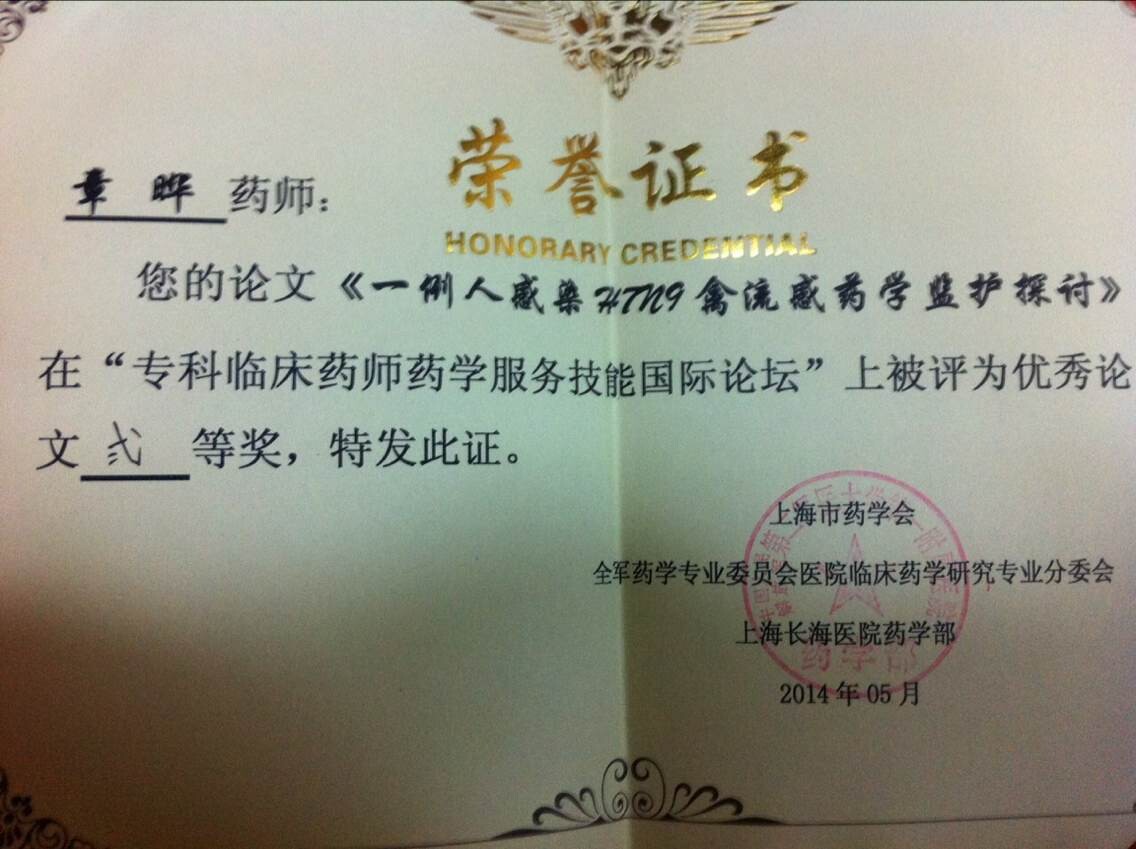 荣誉证书
HONORARY CREDENTIAL
章 晔 药师：
您的论文《一例人感染H7N9禽流感药学监护探讨》
在“专科临床药师药学服务技能国际论坛”上被评为优秀论
文 弍 等奖，特发此证。
上海市药学会
全军药学专业委员会医院临床药学研究专业分委会
上海长海医院药学部
药学部
2014年05月